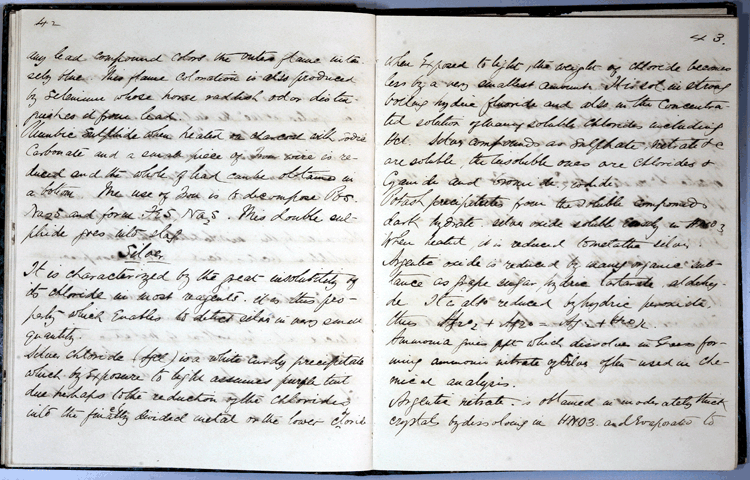 42
any lead compound colors the outer flame inten-
sely blue. This flame coloration is also produced
by Selenium whose horse raddish odor distin-
guishes it from lead.
Plumbic Sulphide when heated on charcoal with sodic
Carbonate and a small piece of Iron wire is re-
duced and the whole of lead can be obtained in
a button. The use of Iron is to decompose PbS
Na2S and form FeS Na2S. This double sul-
phide goes into slag
Silver
It is characterized by the great insolubility of
its chloride in most reagents. it is this pro-
perty which Enables to detect silver in very small
quantity.
Silver Chloride (AgCl) is a white curdy precipitate
which by Exposure to light assumes purple tint
due perhaps to the reduction of the chloride
into the finely divided metal or the lower chloride
3.
when Exposed to light, the weight of chloride becomes
less by a very smallest amount. It is sol. in strong
boiling hydric chloride and also in the Concentra-
ted solution of many soluble Chlorides including
HCl. Silver compounds as Sulphate, nitrate &c
are soluble the insoluble ones are chlorides &
Cyanide and iodide.
Potash precipitates from the soluble compounds
dark hydrate silver oxide soluble in HNO3
When heated it is reduced to metallic silver.
Argentic oxide is reduced by many organic sub-
stance as grape sugar, hydric tartarate aldehy-
de. It is also reduced by hydric peroxide
thus
Ammonia gives ppt which dissolve in Excess for-
ming ammonio nitrate of silver often used in che-
mical analysis.
Argentic nitrate. is obtained in moderately thick
crystals by dissolving in HNO3. and Evaporated to